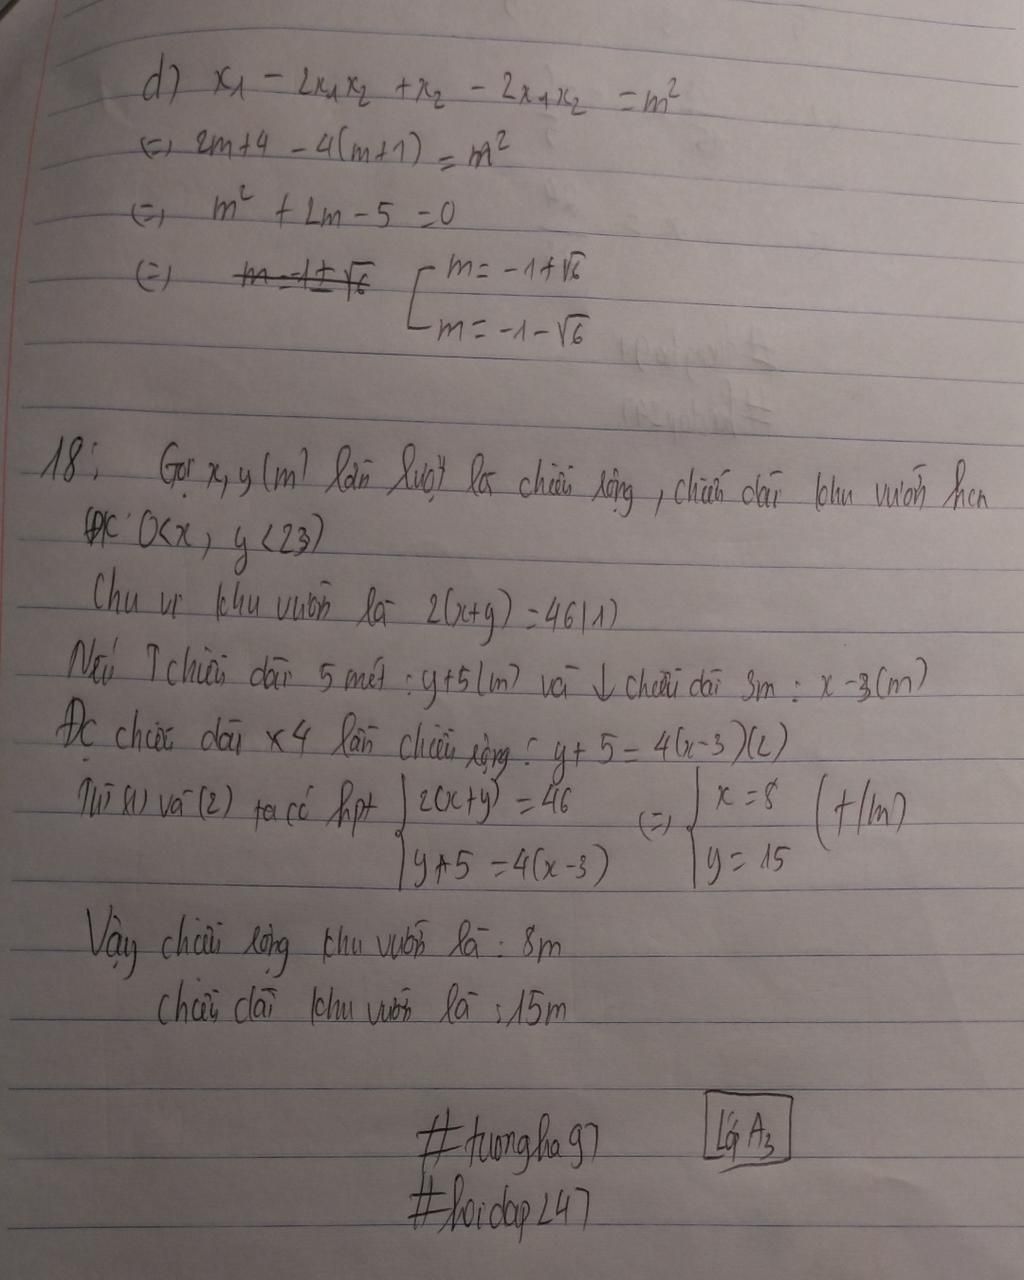 d) x₁ - 2x₁x₂ + x₂ - 2x₁x₂ = m²
(=) 2m+4 - 4(m+1) = m²
(=) m² + 2m - 5 = 0
(=) m = -1 ± √6 [ m = -1+√6
m = -1-√6
18: Gọi x, y (m) lần lượt là chiều rộng, chiều dài khu vườn hcn
ĐK: 0<x, y<23)
Chu vi khu vườn là 2(x+y) = 46(1)
Nếu ↑ chiều dài 5 mét : y+5(m) và ↓ chiều dài 3m : x-3(m)
Đc chiều dài x4 lần chiều rộng : y+5 = 4(x-3)(2)
Từ (1) và (2) ta có hpt { 2(x+y) = 46 (=) { x = 8 (t/m)
y+5 = 4(x-3) y = 15
Vậy chiều rộng khu vườn là : 8m
chiều dài khu vườn là : 15m
#tuongha97 Lớp A₃
#hoidap247